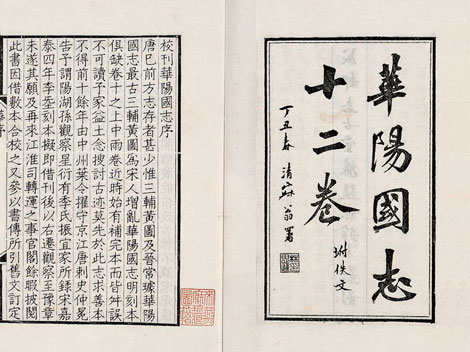 華陽國志
十二卷
坿佚文
丁丑春 清寐翁署
校刊華陽國志序
唐已前方志存者甚少惟三輔黃圖及晉常璩華陽
國志最古三輔黃圖為宋人增亂華陽國志明刻本
俱缺卷十之上中兩卷近時始有補完本而皆舛誤
不可讀予家益土念搜討古迹莫先於此志求善本
不得前十餘年由中州葉令擢守京江唐刺史仲冕
告予謂陽湖孫觀察星衍有季氏振宜家所錄宋嘉
泰四年李𡌴刻本擬即借刊後以右遷觀察至豫章
未遂其願及再來江淮司轉運之事官閣餘暇披閱
此書因借數本合校之又參以書傳所引舊文訂定